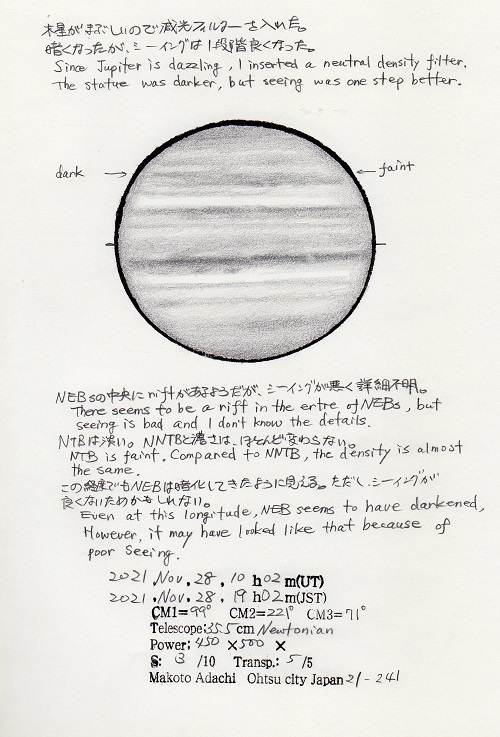 木星がまぶしいので減光フィルターを入れた。
暗くなったが、シーイングは1段階良くなった。
Since Jupiter is dazzling, I inserted a neutral density filter.
The statue was darker, but seeing was one step better.
dark
faint
NEBsの中央にriftがあるようだが、シーイングが悪く詳細不明。
There seems to be a rift in the entre of NEBs, but
seeing is bad and I don't know the details.
NTBは淡い。NNTBと濃さは、ほとんど変わらない。
NTB is faint. Compared to NNTB, the density is almost
the same.
この経度でもNEBは暗化してきたように見える。ただし、シーイングが
良くないためかもしれない。
Even at this longitude, NEB seems to have darkened,
However, it may have looked like that because of
poor seeing.
2021.Nov.28,10h02m(UT)
2021.Nov.28,19h02m(JST)
CM1=99° CM2=221° CM3=71°
Telescope:35.5cm Newtonian
Power:450×500×
S: 3/10 Transp.:5/5
Makoto Adachi Ohtsu city Japan 21-241